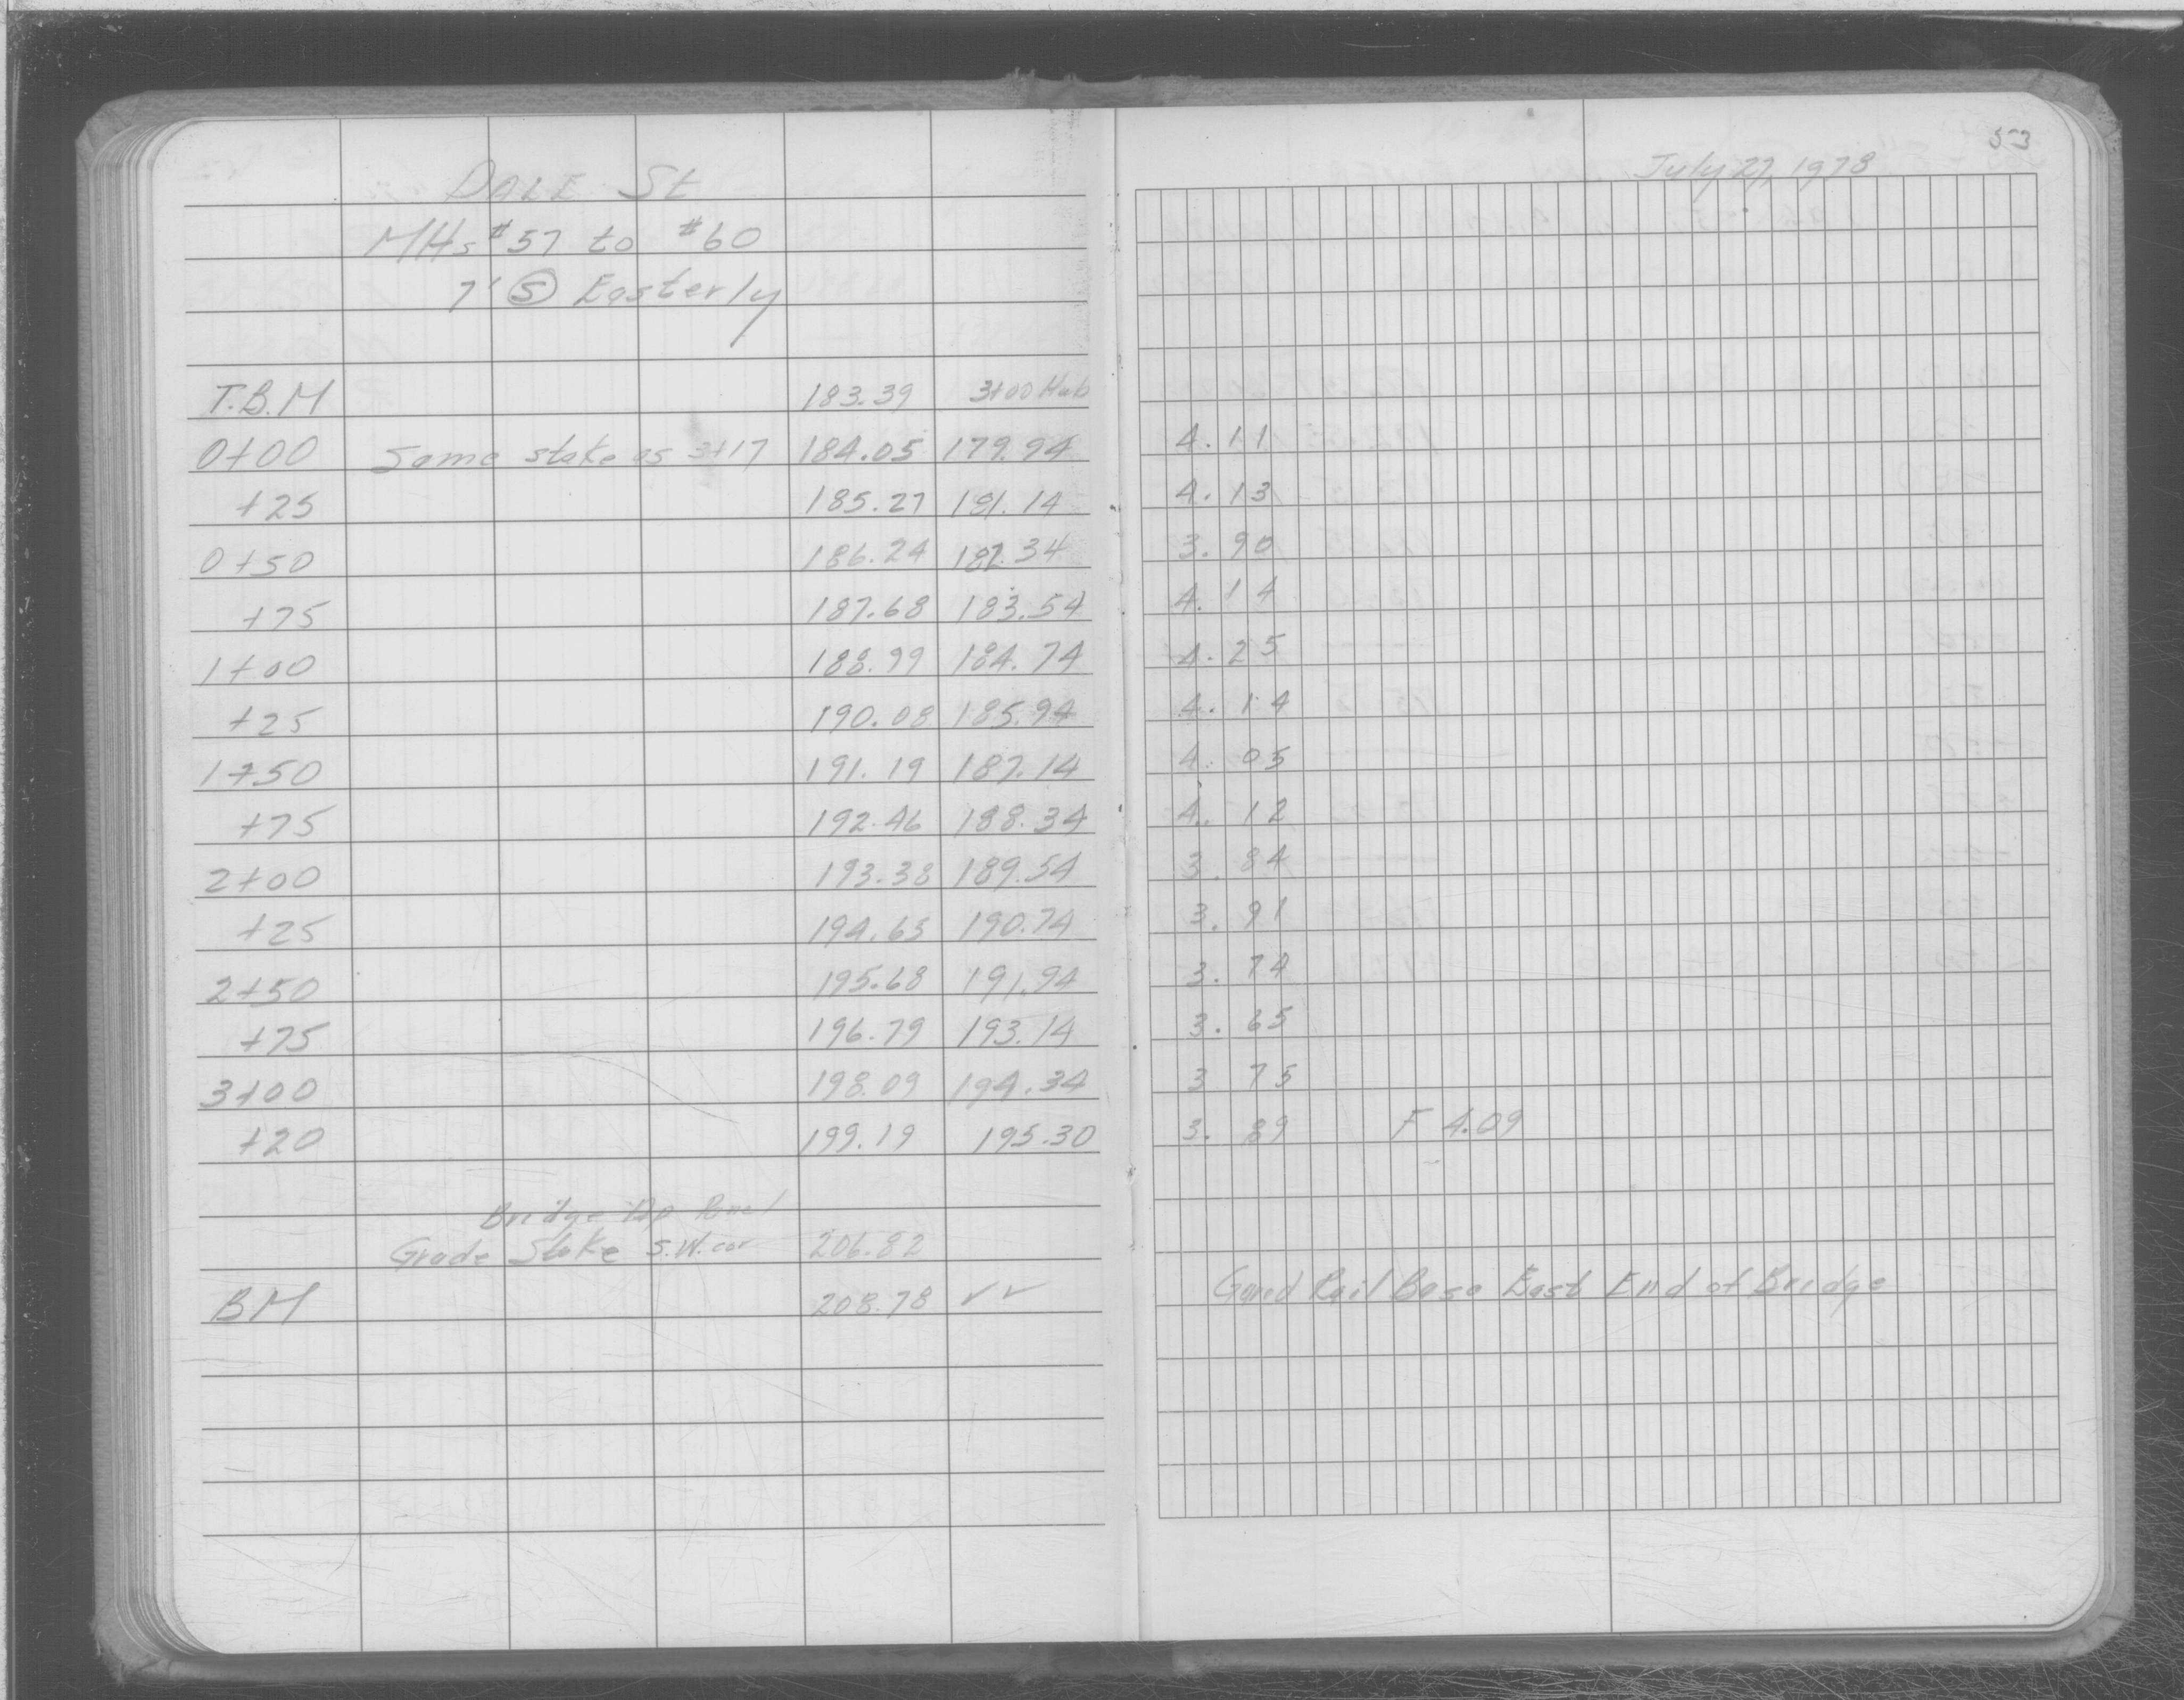 53
July 27, 1978
DALE St
MHs #57 to #60
7' Ⓢ Easterly
T.B.M 183.39 3+00 Hub
0+00 Same stake as 3+17 184.05 179.94 4.11
+25 185.27 181.14 4.13
0+50 186.24 182.34 3.90
+75 187.68 183.54 4.14
1+00 188.99 184.74 4.25
+25 190.08 185.94 4.14
1+50 191.19 187.14 4.05
+75 192.46 188.34 4.12
2+00 193.38 189.54 3.84
+25 194.65 190.74 3.91
2+50 195.68 191.94 3.74
+75 196.79 193.14 3.65
3+00 198.09 194.34 3 75
+20 199.19 195.30 3.89 F 4.09
Bridge Top
Grade Stake S.W. cor 206.82
BM 208.78 ✓✓ Gard Rail Base East End of Bridge